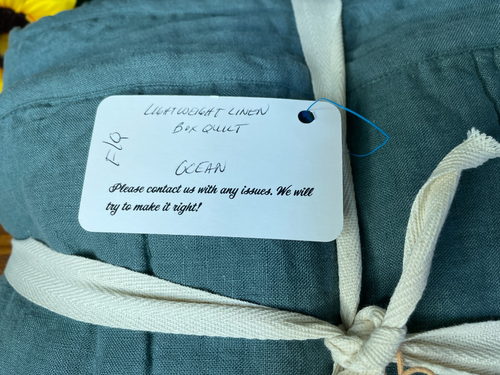 LIGHTWEIGHT LINEN
BOX QUILT
F/Q
OCEAN
Please contact us with any issues. We will
try to make it right!